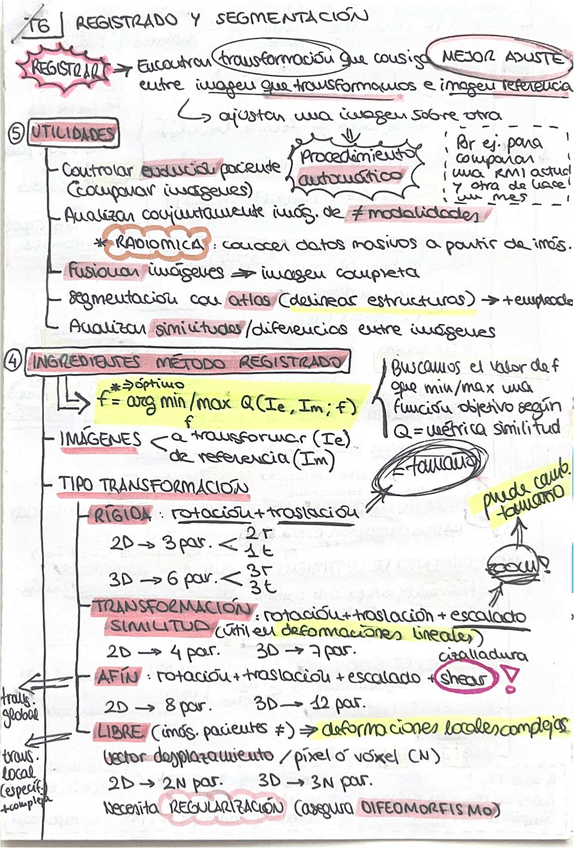 T6 | REGISTRADO Y SEGMENTACIÓN
REGISTRAR → Encontrar transformación que consiga MEJOR AJUSTE
entre imagen que transformamos e imagen referencia
↳ ajustar una imagen sobre otra
⑤ UTILIDADES
Procedimiento
automático
Por ej. para
comparar
una RMI actual
y otra de hace
un mes
Controlar evolución paciente
(comparar imágenes)
Analizar conjuntamente imág. de ≠ modalidades
* RADIOMICA : conocer datos masivos a partir de imás.
Fusionar imágenes ⇒ imagen completa
Segmentación con atlas (delinear estructuras) → + empleado
Analizar similitudes/diferencias entre imágenes
④ INGREDIENTES MÉTODO REGISTRADO
* ⇒ óptimo
f = arg min/max Q (Ie, Im; f)
f
Buscamos el valor de f
que min/max una
función objetivo según
Q = métrica similitud
IMÁGENES < a transformar (Ie)
de referencia (Im)
= tamaño
TIPO TRANSFORMACIÓN
puede camb.
tamaño
RÍGIDA : rotación + traslación
2D → 3 par. < 2r
1t
3D → 6 par. < 3r
3t
zoom!
TRANSFORMACIÓN : rotación + traslación + escalado
SIMILITUD (útil en deformaciones lineales)
2D → 4 par. 3D → 7 par.
cizalladura
AFÍN : rotación + traslación + escalado + shear !
trans.
global
2D → 8 par. 3D → 12 par.
LIBRE (imás. pacientes ≠) ⇒ deformaciones locales complejas
trans.
local
(específ.
+ compleja
vector desplazamiento / píxel ó vóxel (N)
2D → 2N par. 3D → 3N par.
Necesita REGULARIZACIÓN (asegura DIFEOMORFISMO)